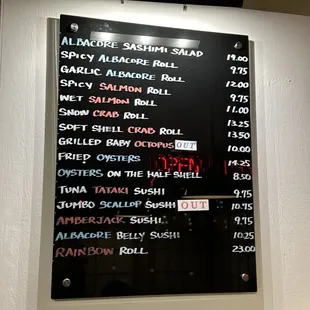 ALBACORE SASHIMI SALAD 19.00
SPICY ALBACORE ROLL 9.75
GARLIC ALBACORE ROLL 12.00
SPICY SALMON ROLL 9.75
WET SALMON ROLL 11.00
SNOW CRAB ROLL 13.25
SOFT SHELL CRAB ROLL 13.50
GRILLED BABY OCTOPUS OUT 10.00
FRIED OYSTERS 14.25
OPEN
OYSTERS ON THE HALF SHELL 8.50
TUNA TATAKI SUSHI 9.75
JUMBO SCALLOP SUSHI OUT 10.75
AMBERJACK SUSHI 9.75
ALBACORE BELLY SUSHI 10.25
RAINBOW ROLL 23.00